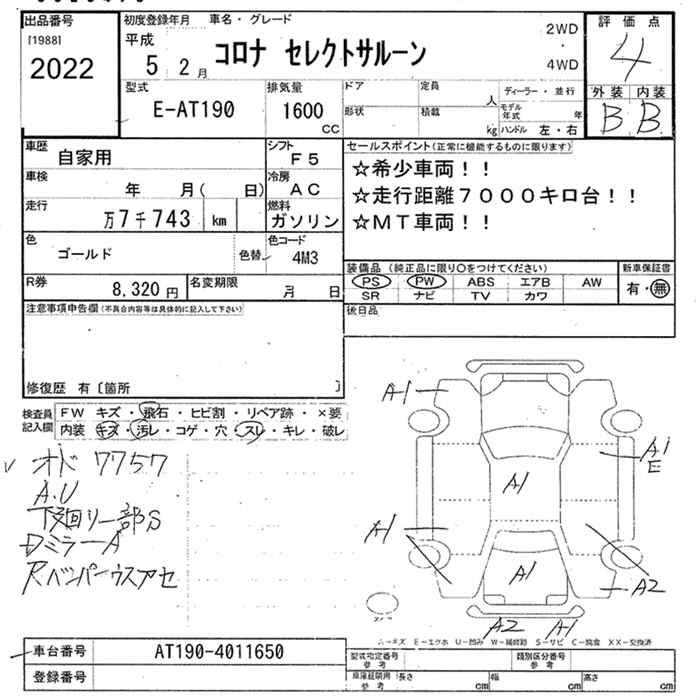 出品番号
[1988]
2022
初度登録年月
平成
5 2月
車名・グレード
コロナ セレクトサルーン
2WD
4WD
評価点
4
外装 内装
B B
型式
E-AT190
排気量
1600
CC
ドア
形状
定員
人
積載
kg
ディーラー・並行
モデル年式 年
ハンドル 左・右
車歴
自家用
シフト
F5
車検
年 月( 日)
冷房
AC
走行
万7千743 km
燃料
ガソリン
色
ゴールド
色替
色コード
4M3
R券
8,320 円
名変期限
月 日
セールスポイント(正常に機能するものに限ります)
☆希少車両!!
☆走行距離7000キロ台!!
☆MT車両!!
装備品(純正品に限り○をつけてください)
PS PW ABS エアB AW
SR ナビ TV カワ
新車保証書
有・無
後日品
注意事項申告欄(不具合内容等は具体的に記入して下さい)
修復歴 有〔箇所 〕
検査員
記入欄
FW キズ・飛石・ヒビ割・リペア跡・×要
内装 キズ・汚レ・コゲ・穴・スレ・キレ・破レ
オド 7757
A.U
下回リ一部S
DミラーA
Rバンパーウスアセ
A1
A1
E
A1
A1
A1
A2
A2 A1
A－キズ E－エクボ U－凹み W－補修跡 S－サビ C－腐食 XX－交換済
車台番号
AT190-4011650
登録番号
型式指定番号
参考
類別区分番号
参考
車庫証明用
参考
長さ cm
幅 cm
高さ cm